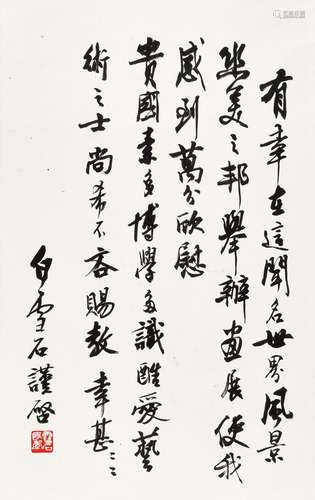 有幸在這聞名世界風景
幽美之邦舉辦畫展使我
感到萬分欣慰
貴國素多博學多識酷愛藝
術之士尚希不吝賜教幸甚〻
白雪石謹啓